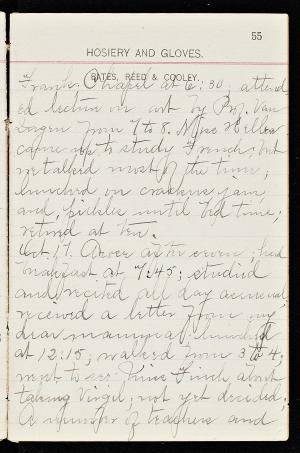 55
HOSIERY AND GLOVES.
BATES, REED & COOLEY.
Frank. Chapel at 6:30, attend
ed lecture on art by Prof. Van
Ingen from 7 to 8. Miss Heller
came up to study French, but
we talked most of the time;
lunched on crackers, jam,
and pickles until bed time;
retired at ten.
Oct. 17. Arose at seven; had
breakfast at 7:45; studied
and recited all day as usual;
received a letter from my
dear mamma; lunched
at 12:15; walked from 3 to 4;
went to see Miss Finch about
taking Virgil; not yet decided.
A number of teachers and